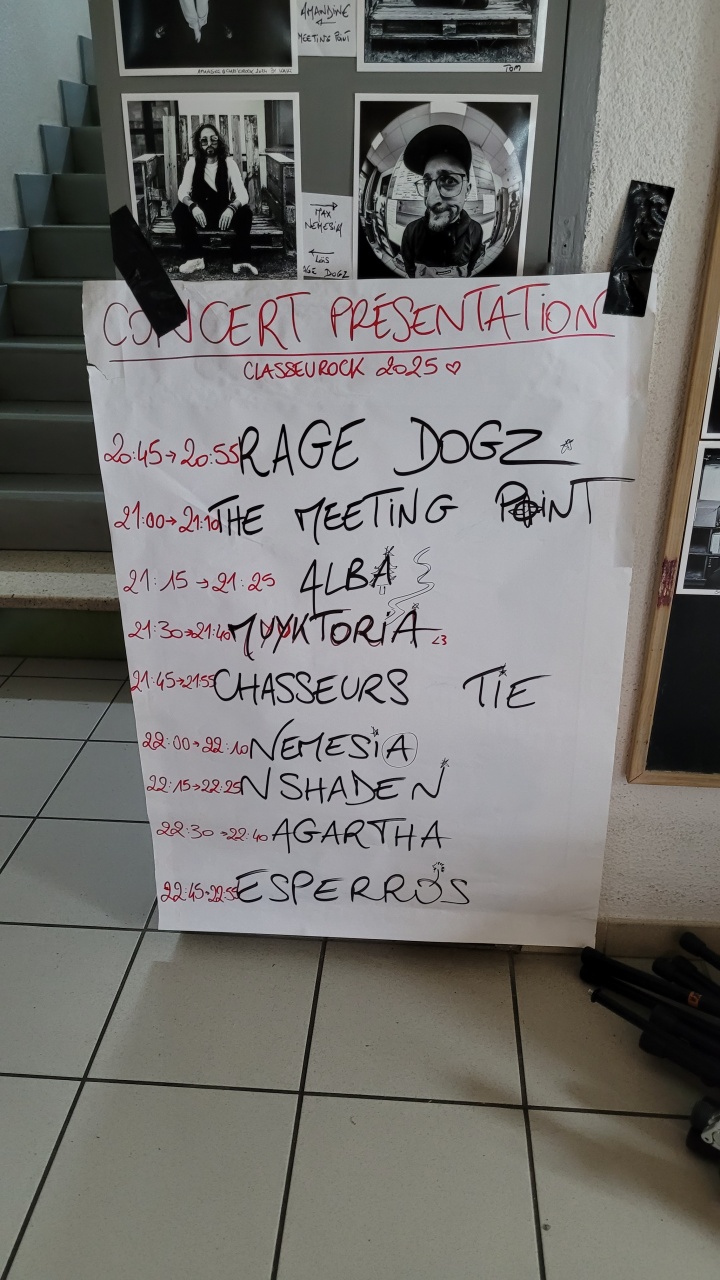 AMANDINE
MEETING POINT
TOM
MAX
NEMESIA
LGS
RAGE DOGZ
CONCERT PRÉSENTATION
CLASSEUROCK 2025 ♡
20:45→20:55 RAGE DOGZ
21:00→21:10 THE MEETING POINT
21:15→21:25 ALBA
21:30→21:40 MYYKTORIA <3
21:45→21:55 CHASSEURS TIE
22:00→22:10 NEMESIA
22:15→22:25 NSHADEN
22:30→22:40 AGARTHA
22:45→22:55 ESPERROS